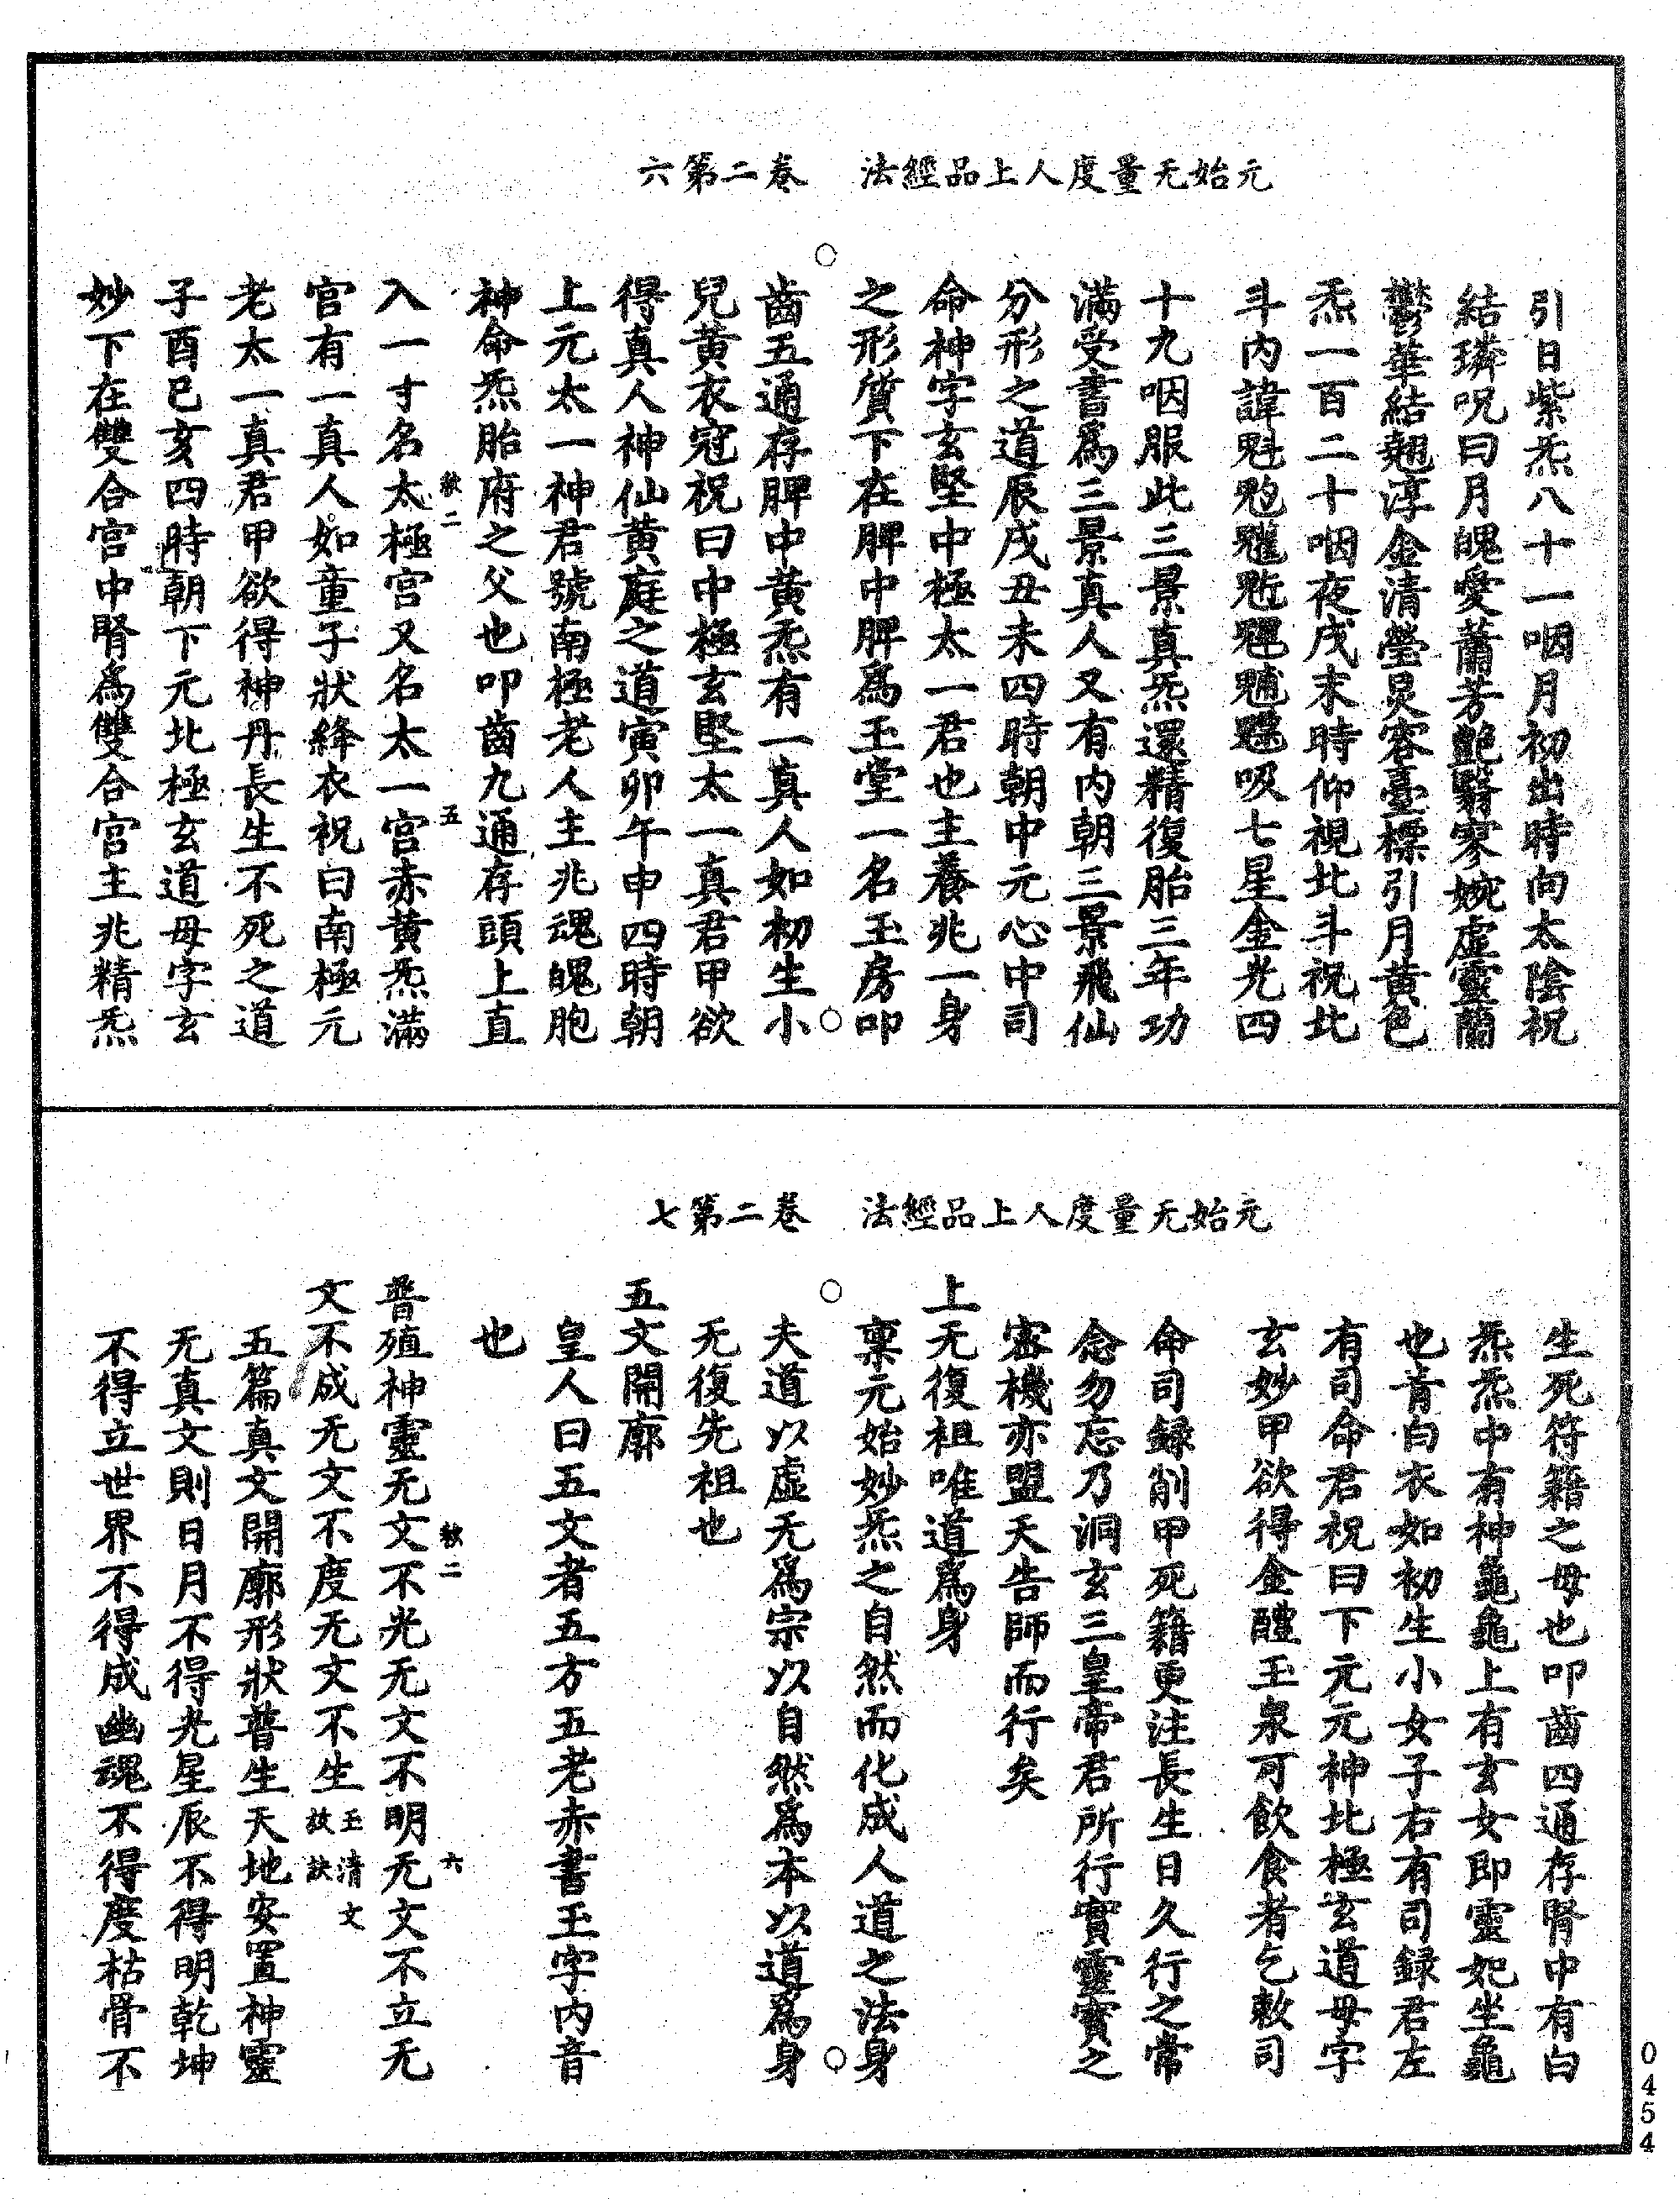 元始无量度人上品經法　卷二第六
引日紫炁八十一咽月初出時向太陰祝
結璘呪曰月魄愛蕭芳艷翳寥婉虛靈蘭
鬱華結翹淳金清瑩炅容臺摽引月黃色
炁一百二十咽夜戌末時仰視北斗祝北
斗內諱魁䰢吸七星金光四
十九咽服此三景真炁還精復胎三年功
滿受書為三景真人又有內朝三景飛仙
分形之道辰戌丑未四時朝中元心中司
命神字玄堅中極太一君也主養兆一身
之形質下在脾中脾為玉堂一名玉房叩
齒五通存脾中黃炁有一真人如初生小
兒黃衣冠祝曰中極玄堅太一真君甲欲
得真人神仙黃庭之道寅卯午申四時朝
上元太一神君號南極老人主兆魂魄胞
神命炁胎府之父也叩齒九通存頭上直
欽二　五
入一寸名太極宮又名太一宮赤黃炁滿
宮有一真人如童子狀絳衣祝曰南極元
老太一真君甲欲得神丹長生不死之道
子酉巳亥四時朝下元北極玄道母字玄
妙下在雙合宮中腎為雙合宮主兆精炁
元始无量度人上品經法　卷二第七
生死符籍之母也叩齒四通存腎中有白
炁炁中有神龜龜上有玄女即靈妃坐龜
也青白衣如初生小女子右有司録君左
有司命君祝曰下元元神北極玄道母字
玄妙甲欲得金醴玉泉可飲食者乞敕司
命司録削甲死籍更注長生日久行之常
念勿忘乃洞玄三皇帝君所行實靈寶之
密機亦盟天告師而行矣
上无復祖唯道為身
稟元始妙炁之自然而化成人道之法身
夫道以虛无為宗以自然為本以道為身
无復先祖也
五文開廓
皇人曰五文者五方五老赤書玉字內音
也
欽二　六
普殖神靈无文不光无文不明无文不立无
文不成无文不度无文不生玉清文
五篇真文開廓形狀普生天地安置神靈
无真文則日月不得光星辰不得明乾坤
不得立世界不得成幽魂不得度枯骨不
0454